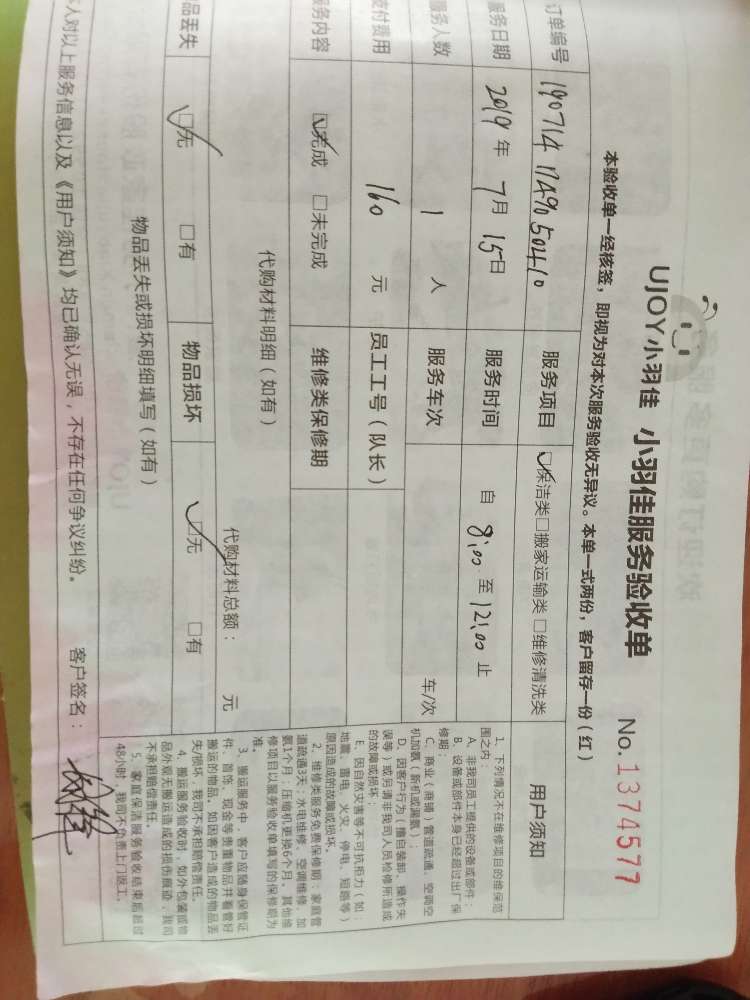 UJOY小羽佳 小羽佳服务验收单
No. 1374577
本验收单一经核签，即视为对本次服务验收无异议。本单一式两份，客户留存一份（红）
订单编号
服务项目 保洁类 □搬家运输类 □维修清洗类
服务日期 2019 年 7 月 15 日 服务时间 自 8:00 至 12:00 止
服务人数 1 人 服务车次 车/次
支付费用 160 元 员工工号（队长）
服务内容 完成 □未完成 维修类保修期
代购材料明细（如有）
代购材料总额： 元
品丢失 □无 □有 物品损坏 □无 □有
物品丢失或损坏明细填写（如有）
本人对以上服务信息以及《用户须知》均已确认无误，不存在任何争议纠纷。 客户签名：
用户须知
1、下列情况不在维修项目的维保范
围之内：
A、非我司员工提供的设备或部件；
B、设备或部件本身已经超过出厂保
修期；
C、商业（商铺）管道疏通、空调空
机加氨（新机或漏氨）；
D、因客户行为（擅自装卸、操作失
误等）或另请非我司人员检修所造成
的故障或损坏；
E、因自然灾害等不可抗拒力（如：
地震、雷电、火灾、停电、短路等）
原因造成的故障或损坏。
2、维修类服务免费保修期：家庭管
道疏通3天；水电维修、空调维修、加
氨1个月；压缩机更换6个月。其他维
修项目以服务验收单填写的保修期为
准。
3、搬运服务中，客户应随身保管证
件、首饰、现金等贵重物品并看管好
搬运的物品。如因客户造成的物品丢
失/损坏，我司不承担赔偿责任。
4、搬运服务验收时，如外包装或物
品外观无搬运造成的损伤痕迹，我司
不承担赔偿责任。
5、家庭保洁服务验收结束后超过
48小时，我司不负责上门返工。